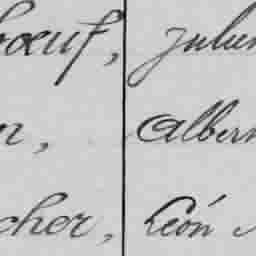 boeuf, Julien
n, Albern
cher, Léon